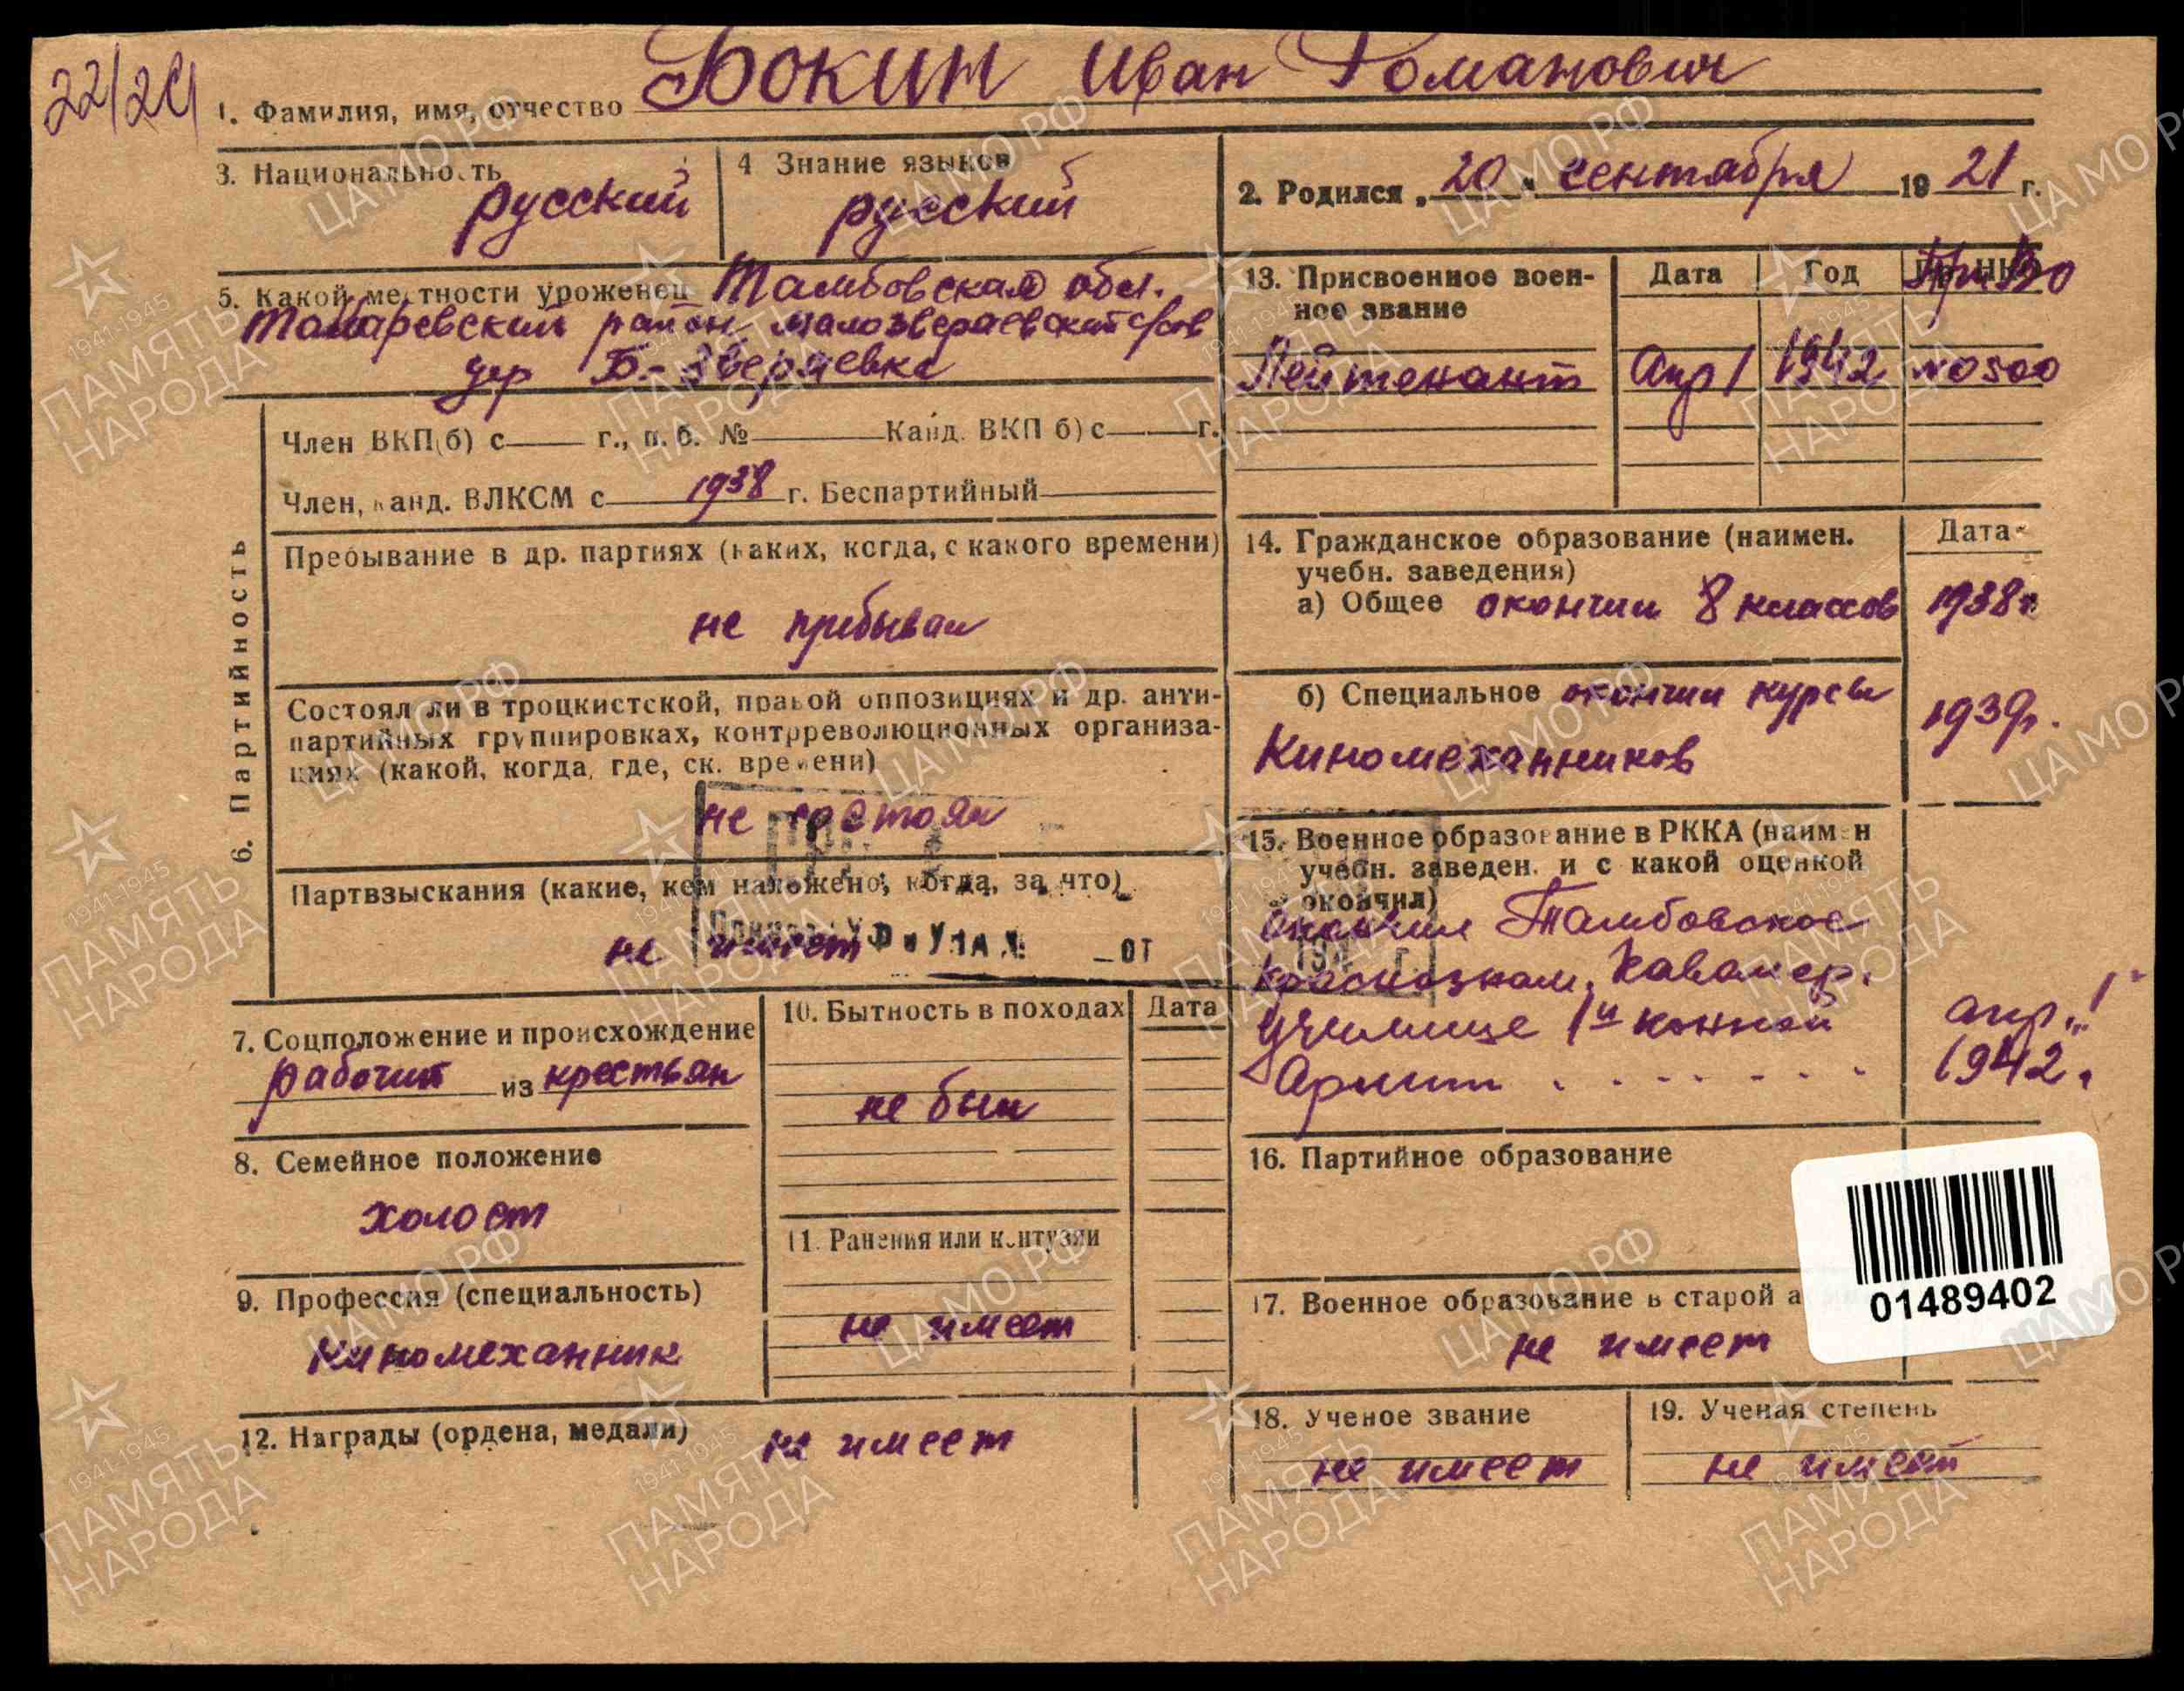 22/24
Бокин Иван Романович
1. Фамилия, имя, отчество
3. Национальность
русский
4 Знание языков
русский
2. Родился „20" сентября 1921 г.
5. Какой местности уроженец Тамбовская обл.
район малозверяевский с/сов
дер Б.-Зверяевка
13. Присвоенное воен-
ное звание
Дата Год
ПриВО
Лейтенант Апр 1 1942 №0500
6. Партийность
Член ВКП(б) с г., п. б. № Канд. ВКП б) с г.
Член, канд. ВЛКСМ с 1938 г. Беспартийный
Пребывание в др. партиях (каких, когда, с какого времени)
не прибывал
Состоял ли в троцкистской, правой оппозициях и др. анти-
партийных группировках, контрреволюционных организа-
циях (какой, когда, где, ск. времени)
не состоял
Партвзыскания (какие, кем наложено, когда, за что)
не имеет
от
7. Соцположение и происхождение
рабочий из крестьян
8. Семейное положение
холост
9. Профессия (специальность)
Киномеханник
10. Бытность в походах Дата
не был
11. Ранения или контузии
не имеет
12. Награды (ордена, медали) не имеет
14. Гражданское образование (наимен.
учебн. заведения)
Дата
а) Общее окончил 8 классов 1938г
б) Специальное окончил курсы
Киномеханников
1939г.
15. Военное образование в РККА (наимен
учебн. заведен. и с какой оценкой
окончил)
194 г.
окончил Тамбовское
краснознам. Кавалер.
училище 1й конной
Армии . . . . . . .
апр. „1"
1942.
16. Партийное образование
17. Военное образование в старой а
не имеет
01489402
18. Ученое звание
не имеет
19. Ученая степень
не имеет
ЦАМО РФ
1941-1945
ПАМЯТЬ
НАРОДА